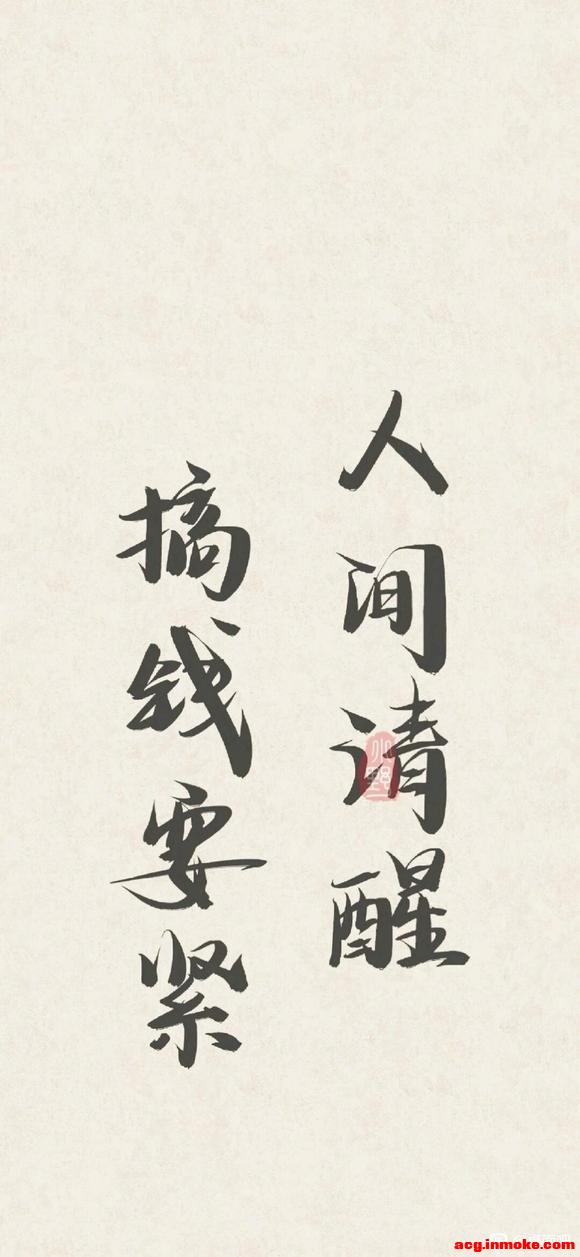 人间请醒
搞钱要紧
小野
acg.inmoke.com